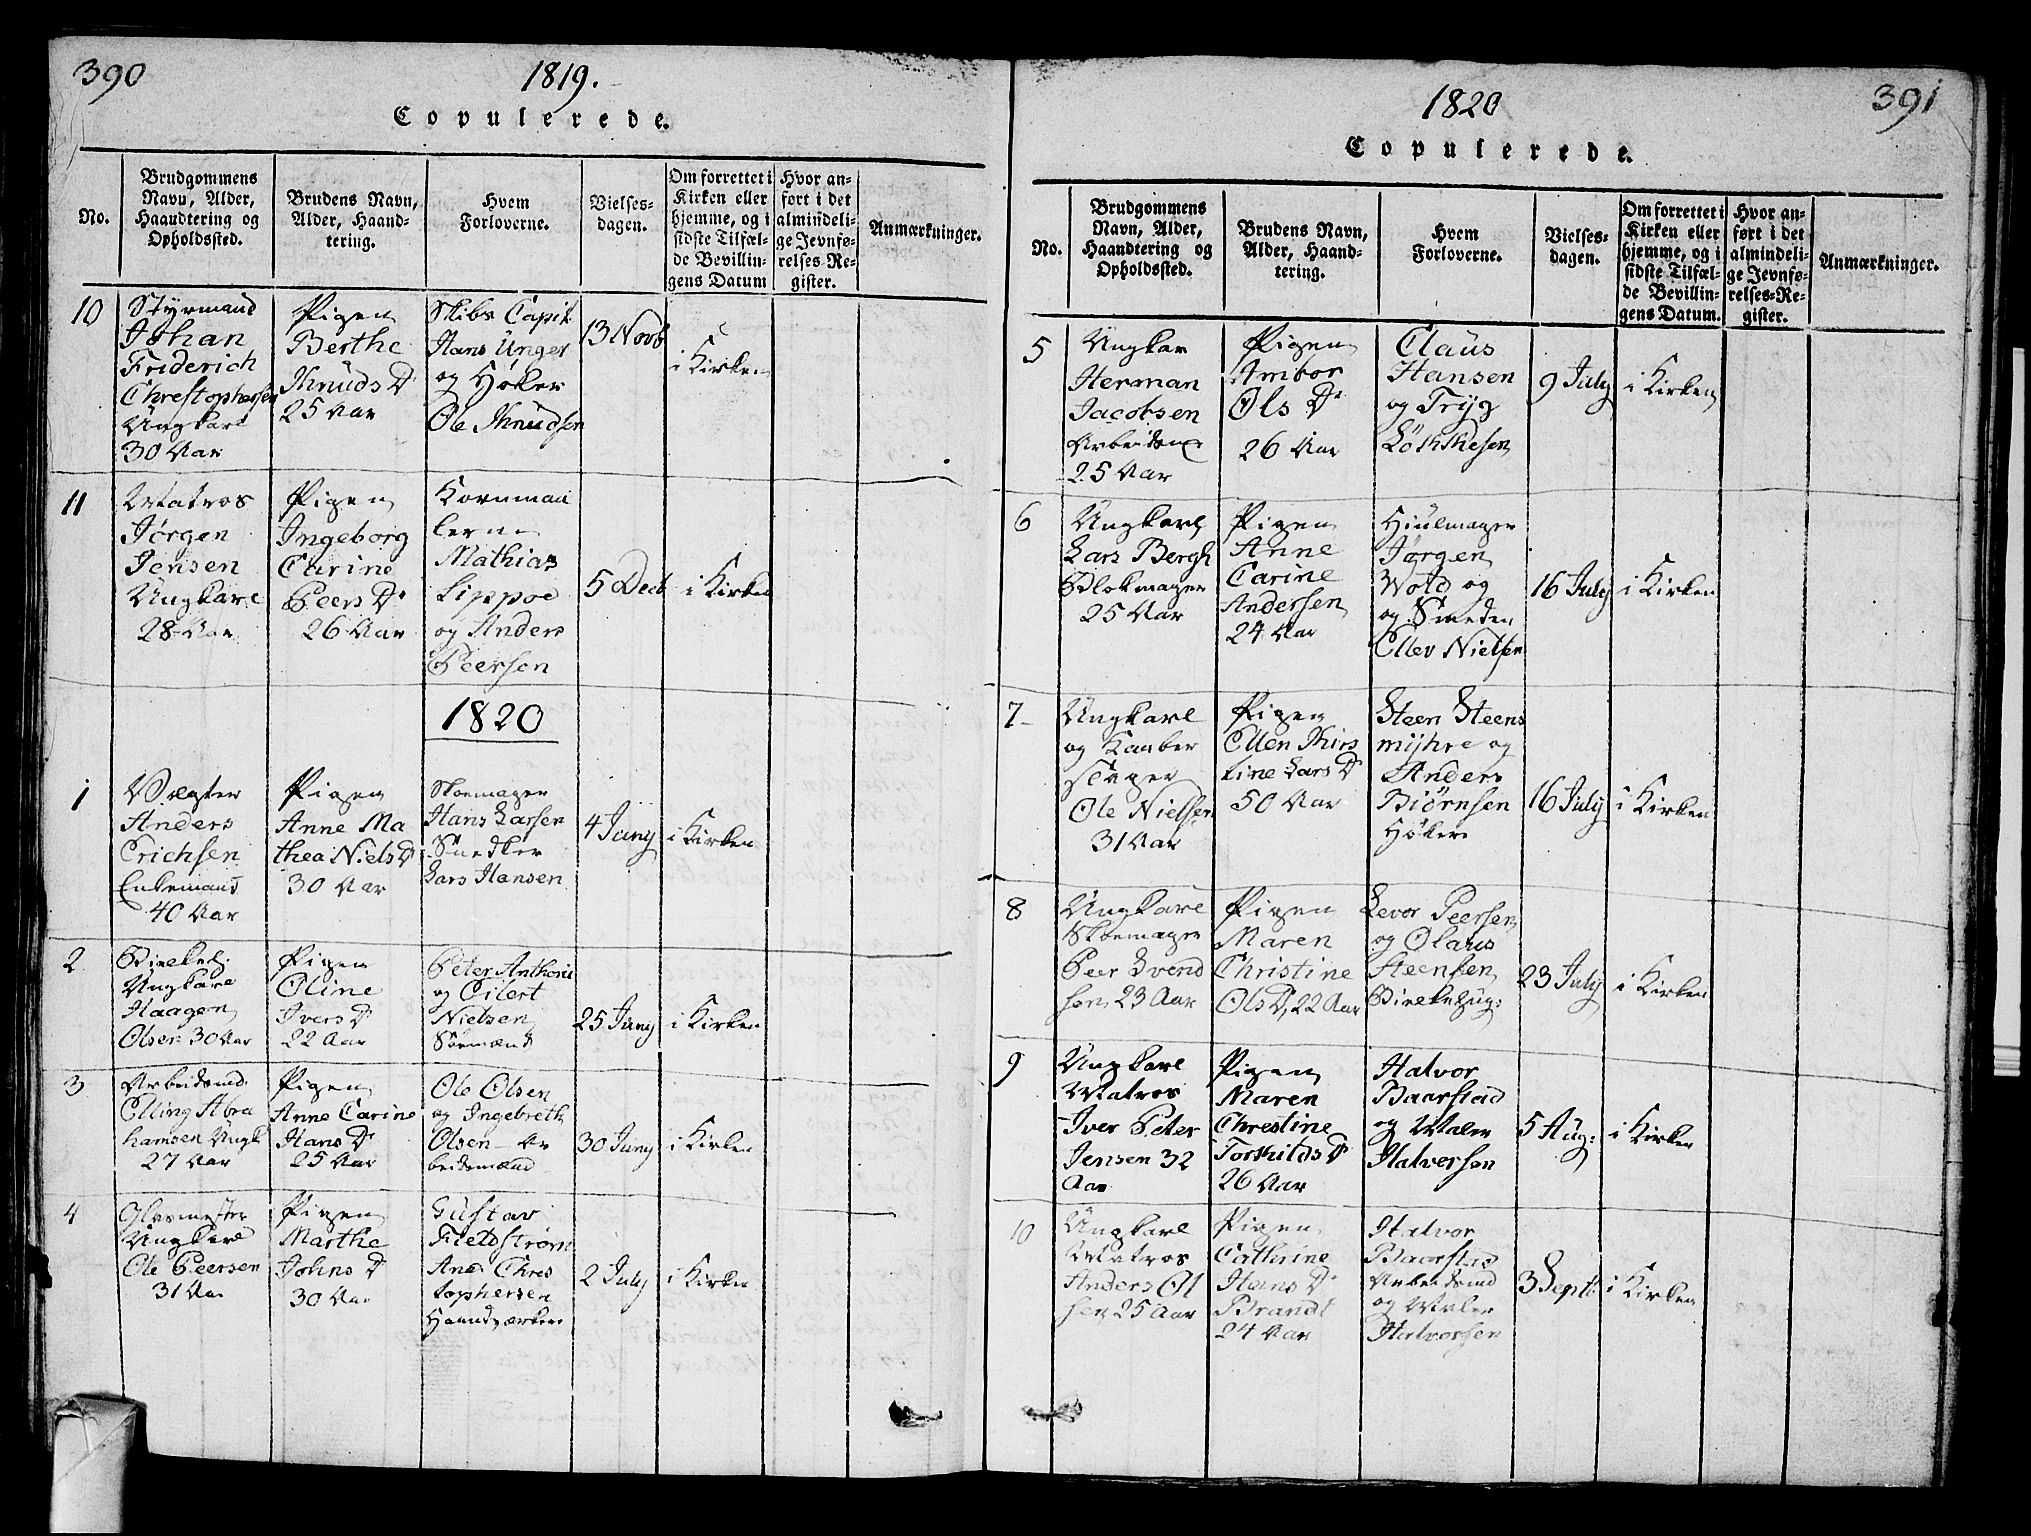 390
1819.
Copulerede.
No.
Brudgommens
Navn, Alder,
Haandtering og
Opholdssted.
Brudens Navn,
Alder, Haand-
tering.
Hvem
Forloverne.
Vielses-
dagen.
Om forrettet i
Kirken eller
hjemme, og i
sidste Tilfæl-
de Bevillin-
gens Datum
Hvor an-
ført i det
almindeli-
ge Jevnfø-
relses Re-
gister.
Anmærkninger.
10
Styrmand
Johan
Friderich
Christophersen
Ungkarl
30 Aar
Pigen
Berthe
Knuds Dr
25 Aar
Skibs Capit
Hans Unger
og Høker
Ole Knudsen
13 Novb
i Kirken
11
Matros
Jørgen
Jensen
Ungkarl
28 Aar
Pigen
Ingeborg
Carine
Peers Dr
26 Aar
Kornmaa
lerne
Mathias
Lippoe
og Anders
Peersen
5 Decb
i Kirken
1820
1
Vægter
Anders
Erichsen
Enkemand
40 Aar
Pigen
Anne Ma
thea Niels Dr
30 Aar
Skoemager
Hans Larsen
Snedker
Lars Hansen
4 Juny
i Kirken
2
Ungkarl
Haagen
Olsen 30 Aar
Pigen
Oline
Ivers Dr
22 Aar
Peter Anthoni
og Eilert
Nielsen
Søemænd
25 Juny
i Kirken
3
Arbeidsmd.
Elling Abra
hamsen Ungk
27 Aar
Pigen
Anne Carine
Hans Dr
25 Aar
Ole Olsen
og Ingebreth
Olsen Ar
beidsmænd
30 Juny
i Kirken
4
Glasmester
Ungkarl
Ole Peersen
31 Aar
Pigen
Marthe
Johns Dr
30 Aar
Gustav
Fieldstrøm
And: Chris
tophersen
Haandværkere
2 July
i Kirken
1820
391
Copulerede.
No.
Brudgommens
Navn, Alder,
Haandtering og
Opholdssted.
Brudens Navn,
Alder, Haand-
tering.
Hvem
Forloverne.
Vielses-
dagen.
Om forrettet i
Kirken eller
hjemme, og i
sidste Tilfæl-
de Bevillin-
gens Datum.
Hvor an-
ført i det
almindeli-
ge Jevnfø-
relses-Re-
gister.
Anmærkninger.
5
Ungkar
Herman
Jacobsen
25 Aar
Pigen
Ambor
Ols Dr
26 Aar
Claus
Hansen
og Tryg
9 July
i Kirken
6
Ungkarl
Lars Bergh
Blokmager
25 Aar
Pigen
Anne
Carine
Andersen
24 Aar
Hiulmager
Jørgen
Wold og
og Smeden
Ellev Nielsen
16 July
i Kirken
7
Ungkarl
og Kaaber
slager
Ole Nielsen
31 Aar
Pigen
Ellen Kirs
tine Lars Dr
50 Aar
Steen Steens
mijhre og
Anders
Biørnsen
Høkere
16 July
i Kirken
8
Ungkarl
Skoemager
Peer Svend
sen, 23 Aar
Pigen
Maren
Christine
Ols Dr, 22 Aar
Levor Peersen
og Olaus
Steensen
23 July
i Kirken
9
Ungkarl
Matros
Iver Peter
Jensen 32
Aar
Pigen
Maren
Christine
Torkilds Dr
26 Aar
Halvor
Baarstad
og Maler
Halversen
5 Aug:
i Kirken
10
Ungkarl
Matros
Anders Ol
sen, 25 Aar
Pigen
Cathrine
Hans Dr
Brandt
24 Aar
Halvor
Baarstad
Arbeidsmd
og Maler
Halvorsen
3 Septb
i Kirken